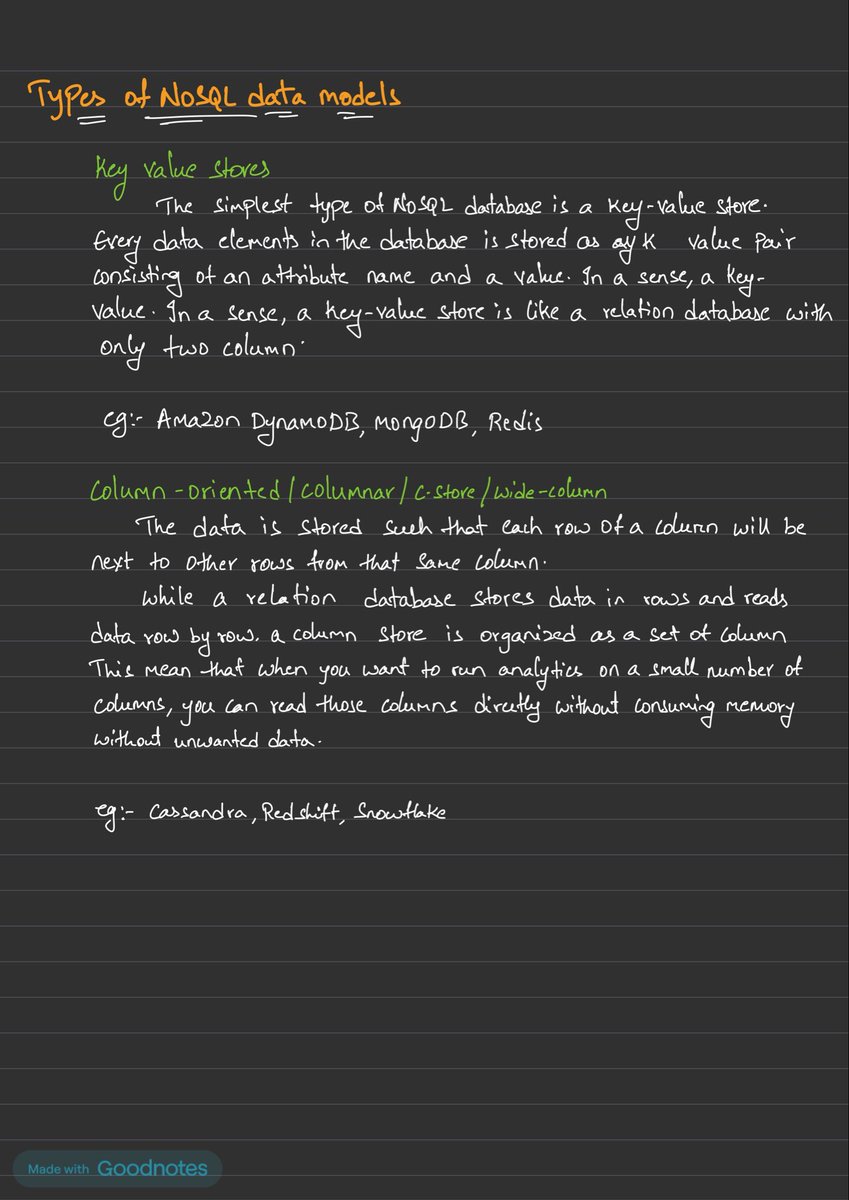 Types of NoSQL data models
Key value stores
The simplest type of NoSQL database is a key-value store.
Every data elements in the database is stored as value pair
consisting of an attribute name and a value. In a sense, a key-
value. In a sense, a key-value store is like a relation database with
only two column.
eg:- Amazon DynamoDB, MongoDB, Redis
Column-oriented/columnar/C-store/wide-column
The data is stored such that each row of a column will be
next to other rows from that same column.
While a relation database stores data in rows and reads
data row by row. a column store is organized as a set of column
This mean that when you want to run analytics on a small number of
columns, you can read those columns directly without consuming memory
without unwanted data.
eg:- Cassandra, Redshift, Snowflake
Made with Goodnotes